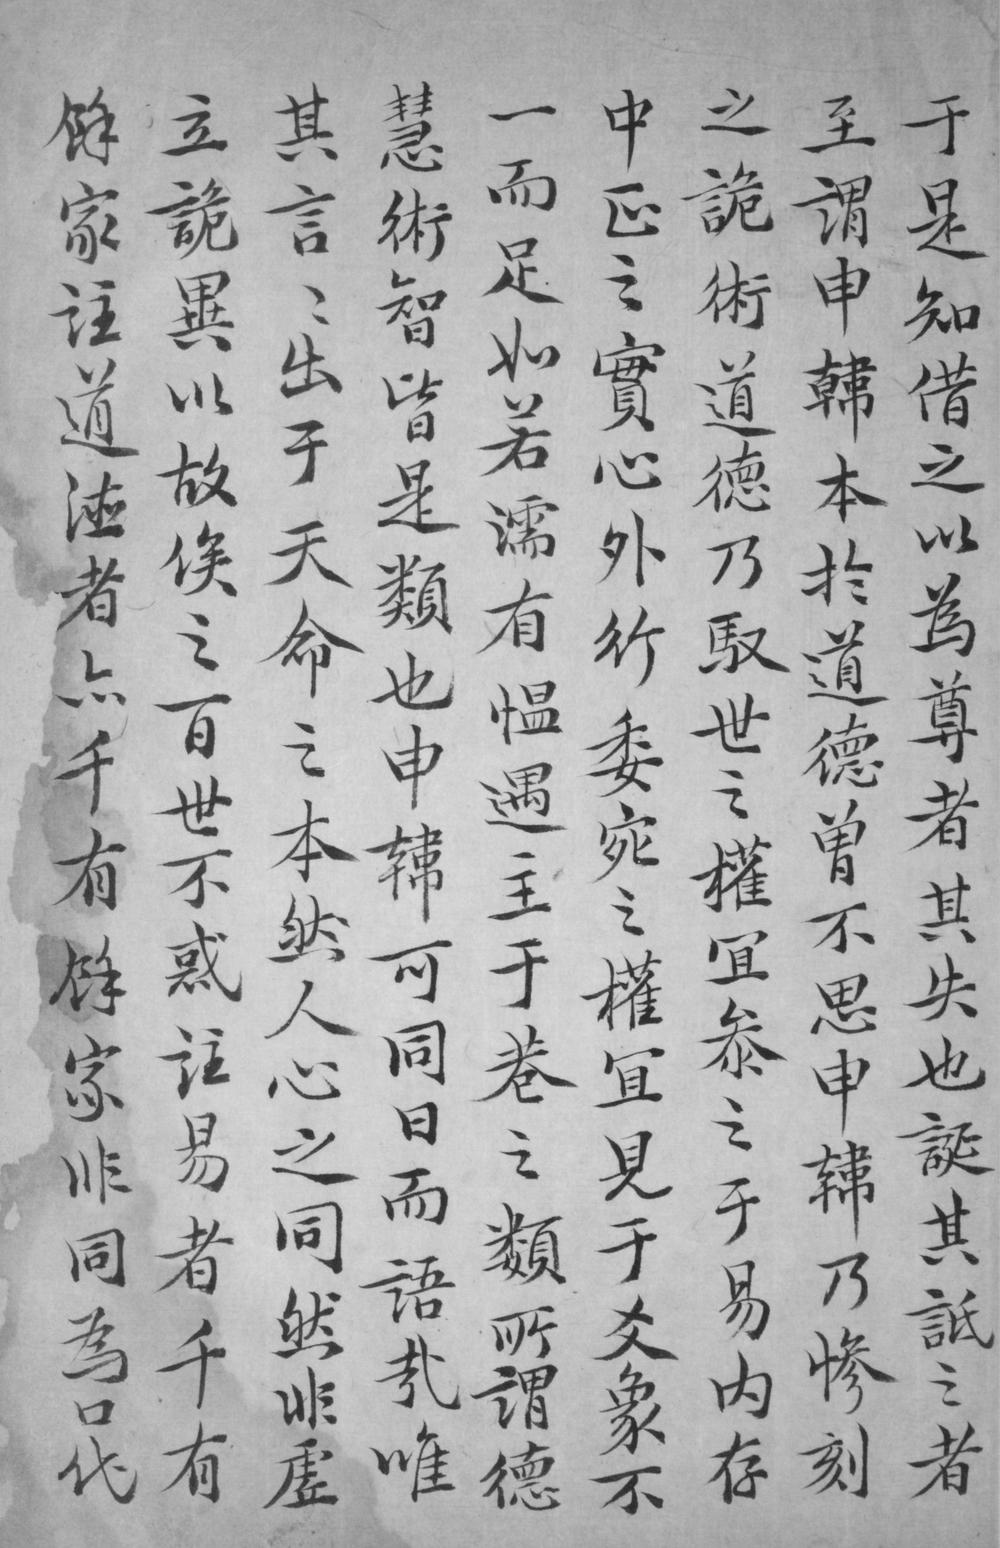 于是知借之以為尊者其失也誕其詆之者
至謂申韓本於道德曾不思申韓乃慘刻
之詭術道德乃馭世之權宜叅之于易內存
中正之實心外行委宛之權宜見于爻象不
一而足如若濡有愠遇主于巷之類所謂德
慧術智皆是類也申韓可同日而語哉唯
其言〻出于天命之本然人心之同然非虛
立詭異以故俟之百世不惑註易者千有
餘家註道德者亦千有餘家非同為口代